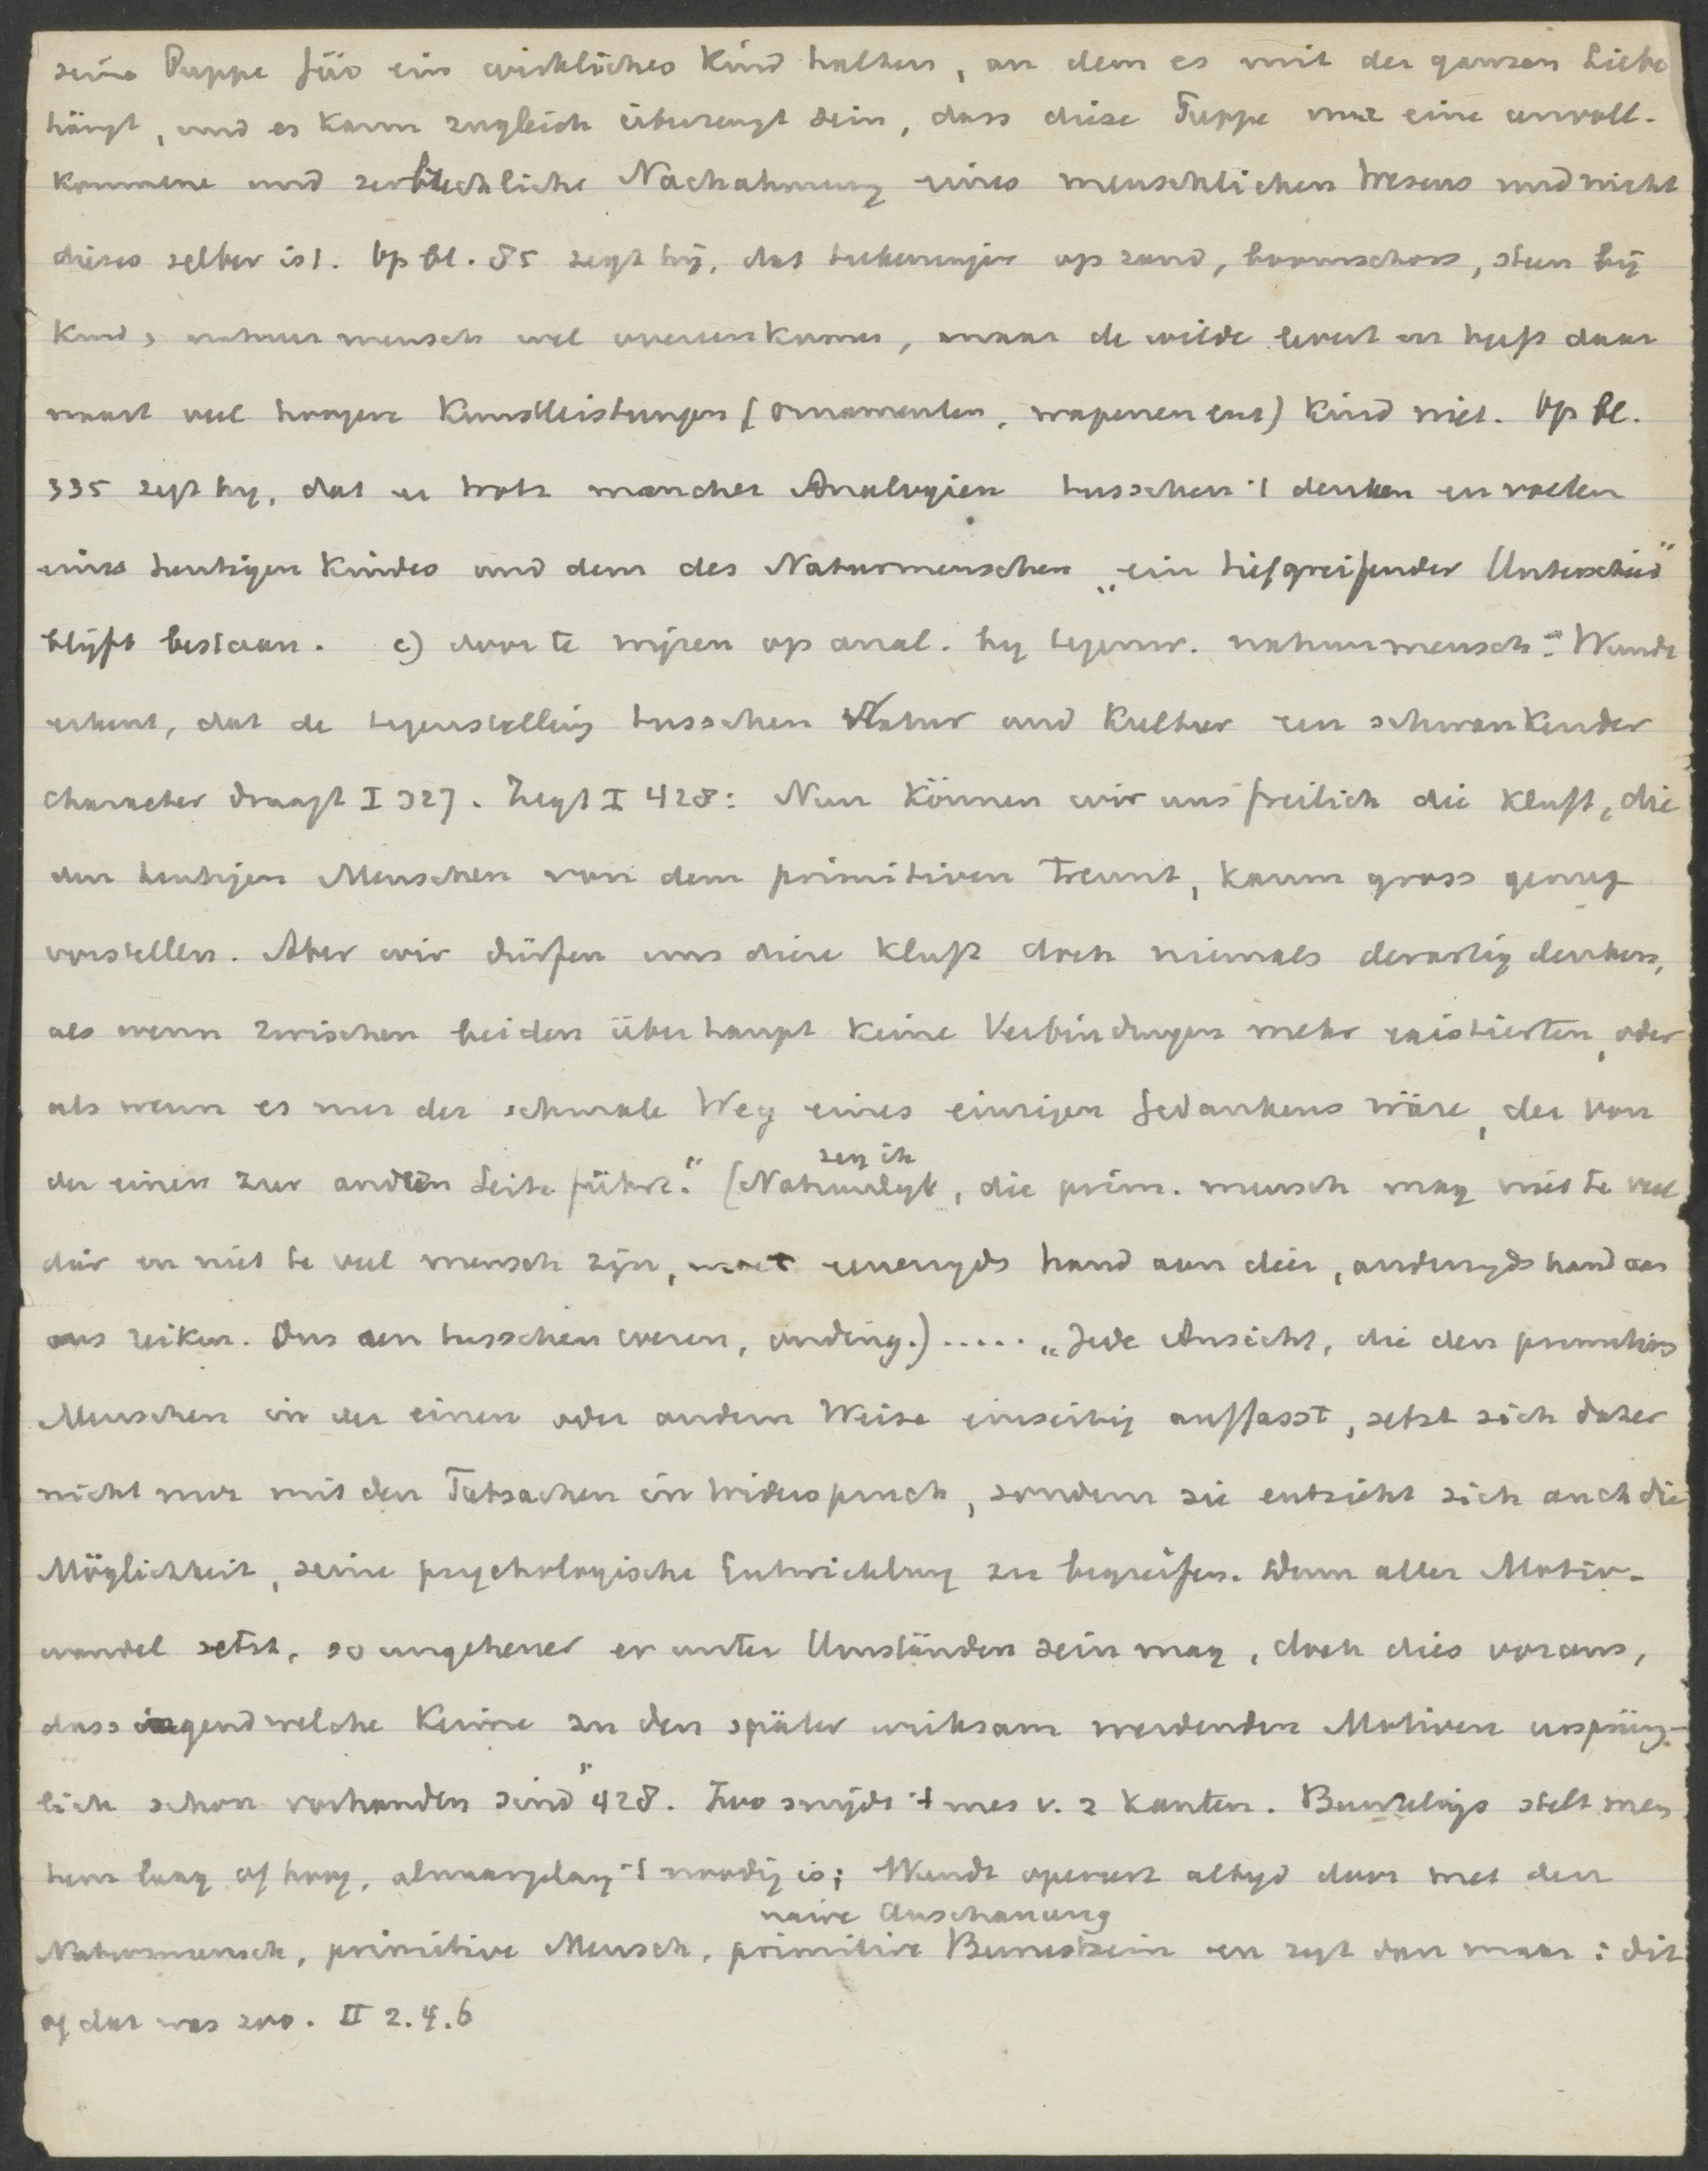 seine Puppe für ein wirkliches Kind halten, an dem es mit der ganzen Liebe
hängt, und es kann zugleich überzeugt sein, dass diese Puppe nur eine unvoll-
kommene und zerbrechliche Nachahmung eines menschlichen Wesens und nicht
dieses selber ist. Op bl. 85 zegt hij, dat teekeningen op zand, boomschors, steen bij
kind, natuurmensch wel overeenkomen, maar de wilde levert en heeft daar
naast veel hoogere Kunstleistungen (ornamenten, wapenen enz) kind niet. Op bl.
335 zegt hy, dat er trotz mancher Analogien tusschen 't denken en voelen
eines heutigen Kindes und dem des Naturmenschen „ein tiefgreifender Unterschied"
blijft bestaan. c) door te wijzen op anal. by tegenw. natuurmensch. Wundt
erkent, dat de tegenstelling tusschen Natur und Kultur een schwankender
character draagt I 327. Zegt I 428: Nun können wir uns freilich die Kluft, die
den heutigen Menschen von dem primitiven trennt, kaum gross genug
vorstellen. Aber wir dürfen uns diese Kluft doch niemals derartig denken,
als wenn zwischen beiden überhaupt keine Verbindungen mehr existierten, oder
als wenn es nur der schmale Weg eines einzigen Gedankens wäre, der von
zeg ik
der einen zur andern Seite führt." (Natuurlyk, die prim. mensch mag niet te veel
dier en niet te veel mensch zijn, moet eenerzyds hand aan dier, anderzyds hand aan
ons reiken. Dus een tusschen wezen, onding.)..... „Jede Ansicht, die den primitiven
Menschen in der einen oder andern Weise einseitig auffasst, setzt sich daher
nicht nur mit den Tatsachen in Widerspruch, sondern sie entzieht sich auch die
Möglichkeit, seine psychologische Entwicklung zu begreifen. Denn aller Motiv-
wandel setzt, so ungeheuer er unter Umständen sein mag, doch dies voraus,
dass irgendwelche Keime zu den später wirksam werdenden Motiven ursprüng-
lich schon vorhanden sind" 428. Zoo snijdt 't mes v. 2 kanten. Beurtelings stelt men
hem laag of hoog, al naargelang 't noodig is; Wundt opereert altyd door met den
naive Anschauung
Naturmensch, primitive Mensch, primitive Bewustsein en zegt dan maar: dit
of dat was zoo. II 2.4.6